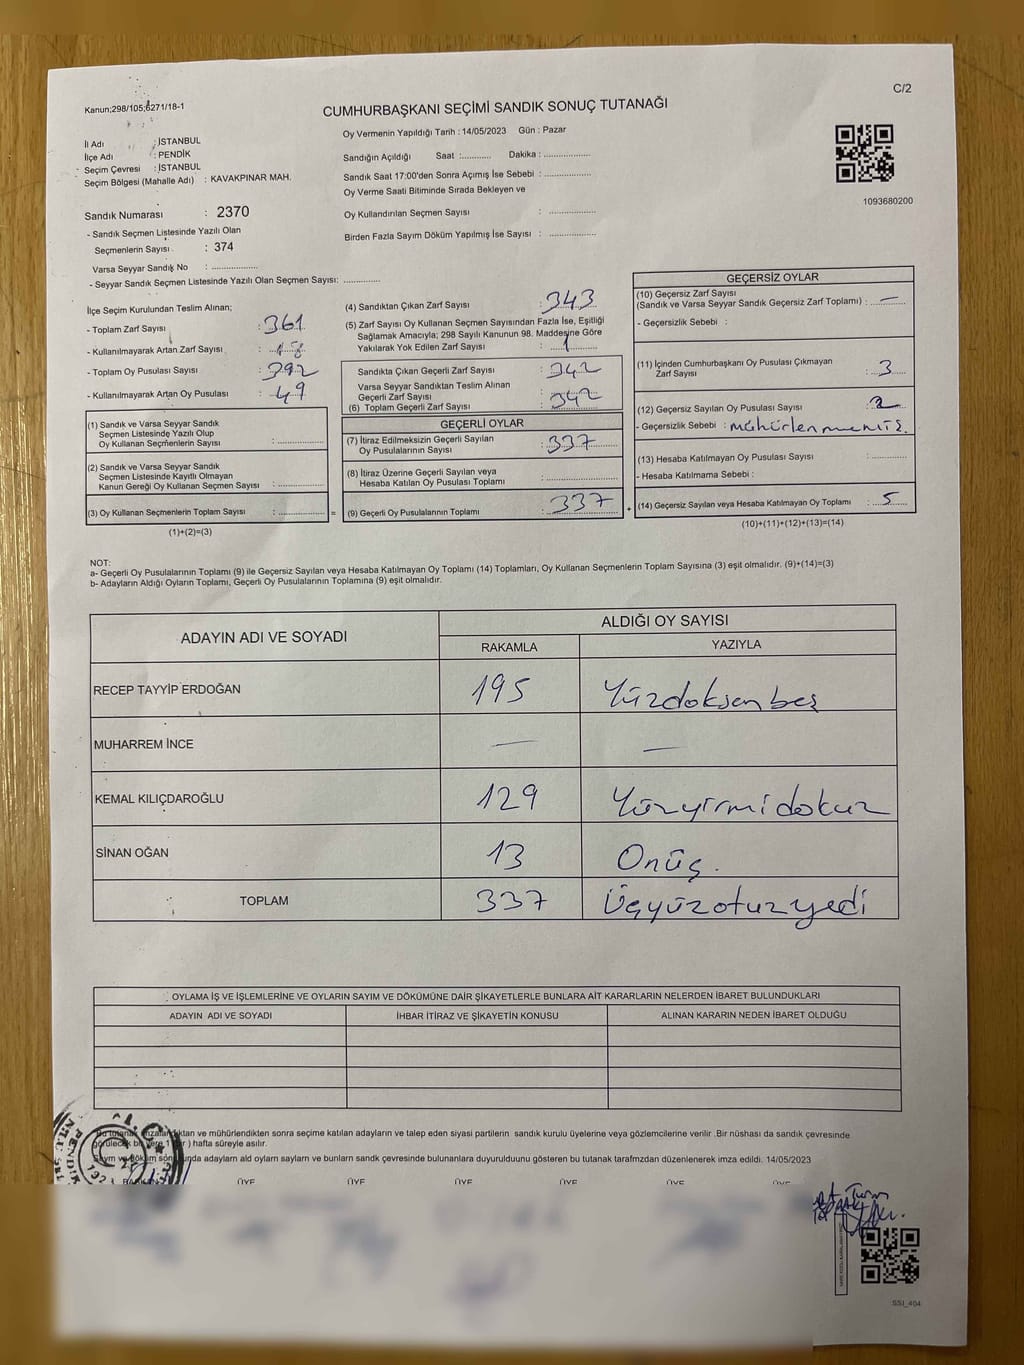 Kanun;298/105;6271/18-1
C/2
CUMHURBAŞKANI SEÇİMİ SANDIK SONUÇ TUTANAĞI
İl Adı : İSTANBUL
İlçe Adı : PENDİK
Seçim Çevresi : İSTANBUL
Seçim Bölgesi (Mahalle Adı) : KAVAKPINAR MAH.
Sandık Numarası : 2370
- Sandık Seçmen Listesinde Yazılı Olan
Seçmenlerin Sayısı : 374
Varsa Seyyar Sandık No : ................
- Seyyar Sandık Seçmen Listesinde Yazılı Olan Seçmen Sayısı: ............
Oy Vermenin Yapıldığı Tarih : 14/05/2023 Gün : Pazar
Sandığın Açıldığı Saat :........... Dakika : ................
Sandık Saat 17:00'den Sonra Açımış İse Sebebi : ................
Oy Verme Saati Bitiminde Sırada Bekleyen ve
Oy Kullandırılan Seçmen Sayısı : ................
Birden Fazla Sayım Döküm Yapılmış İse Sayısı : ................
1093680200
İlçe Seçim Kurulundan Teslim Alınan;
- Toplam Zarf Sayısı : 361
- Kullanılmayarak Artan Zarf Sayısı : 18
- Toplam Oy Pusulası Sayısı : 392
- Kullanılmayarak Artan Oy Pusulası : 49
(1) Sandık ve Varsa Seyyar Sandık
Seçmen Listesinde Yazılı Olup
Oy Kullanan Seçmenlerin Sayısı : ................
(2) Sandık ve Varsa Seyyar Sandık
Seçmen Listesinde Kayıtlı Olmayan
Kanun Gereği Oy Kullanan Seçmen Sayısı : ................
(3) Oy Kullanan Seçmenlerin Toplam Sayısı : ................ =
(1)+(2)=(3)
(4) Sandıktan Çıkan Zarf Sayısı : 343
(5) Zarf Sayısı Oy Kullanan Seçmen Sayısından Fazla İse, Eşitliği
Sağlamak Amacıyla; 298 Sayılı Kanunun 98. Maddesine Göre
Yakılarak Yok Edilen Zarf Sayısı : 1
Sandıkta Çıkan Geçerli Zarf Sayısı : 342
Varsa Seyyar Sandıktan Teslim Alınan
Geçerli Zarf Sayısı
(6) Toplam Geçerli Zarf Sayısı : 342
GEÇERLİ OYLAR
(7) İtiraz Edilmeksizin Geçerli Sayılan
Oy Pusulalarının Sayısı : 337
(8) İtiraz Üzerine Geçerli Sayılan veya
Hesaba Katılan Oy Pusulası Toplamı : ................
(9) Geçerli Oy Pusulalarının Toplamı : 337 +
GEÇERSİZ OYLAR
(10) Geçersiz Zarf Sayısı
(Sandık ve Varsa Seyyar Sandık Geçersiz Zarf Toplamı) : —
- Geçersizlik Sebebi :
(11) İçinden Cumhurbaşkanı Oy Pusulası Çıkmayan
Zarf Sayısı : 3
(12) Geçersiz Sayılan Oy Pusulası Sayısı : 2
- Geçersizlik Sebebi : mühürlenmemiş.
(13) Hesaba Katılmayan Oy Pusulası Sayısı : ............
- Hesaba Katılmama Sebebi :
(14) Geçersiz Sayılan veya Hesaba Katılmayan Oy Toplamı : 5
(10)+(11)+(12)+(13)=(14)
NOT:
a- Geçerli Oy Pusulalarının Toplamı (9) ile Geçersiz Sayılan veya Hesaba Katılmayan Oy Toplamı (14) Toplamları, Oy Kullanan Seçmenlerin Toplam Sayısına (3) eşit olmalıdır. (9)+(14)=(3)
b- Adayların Aldığı Oyların Toplamı, Geçerli Oy Pusulalarının Toplamına (9) eşit olmalıdır.
ADAYIN ADI VE SOYADI
ALDIĞI OY SAYISI
RAKAMLA YAZIYLA
RECEP TAYYİP ERDOĞAN 195 Yüzdoksanbeş
MUHARREM İNCE — —
KEMAL KILIÇDAROĞLU 129 Yüzyirmidokuz
SİNAN OĞAN 13 Onüç.
TOPLAM 337 Üçyüzotuzyedi
OYLAMA İŞ VE İŞLEMLERİNE VE OYLARIN SAYIM VE DÖKÜMÜNE DAİR ŞİKAYETLERLE BUNLARA AİT KARARLARIN NELERDEN İBARET BULUNDUKLARI
ADAYIN ADI VE SOYADI İHBAR İTİRAZ VE ŞİKAYETİN KONUSU ALINAN KARARIN NEDEN İBARET OLDUĞU
Bu tutanak imzalandıktan ve mühürlendikten sonra seçime katılan adayların ve talep eden siyasi partilerin sandık kurulu üyelerine veya gözlemcilerine verilir .Bir nüshası da sandık çevresinde
görülecek bir yere 1 (bir) hafta süreyle asılır.
Sayım ve döküm sonunda adaylarn ald oylarn saylarn ve bunlarn sandk çevresinde bulunanlara duyurulduunu gösteren bu tutanak tarafmzdan düzenlenerek imza edildi. 14/05/2023
BAŞKAN ÜYE ÜYE ÜYE ÜYE ÜYE ÜYE
SSI_404